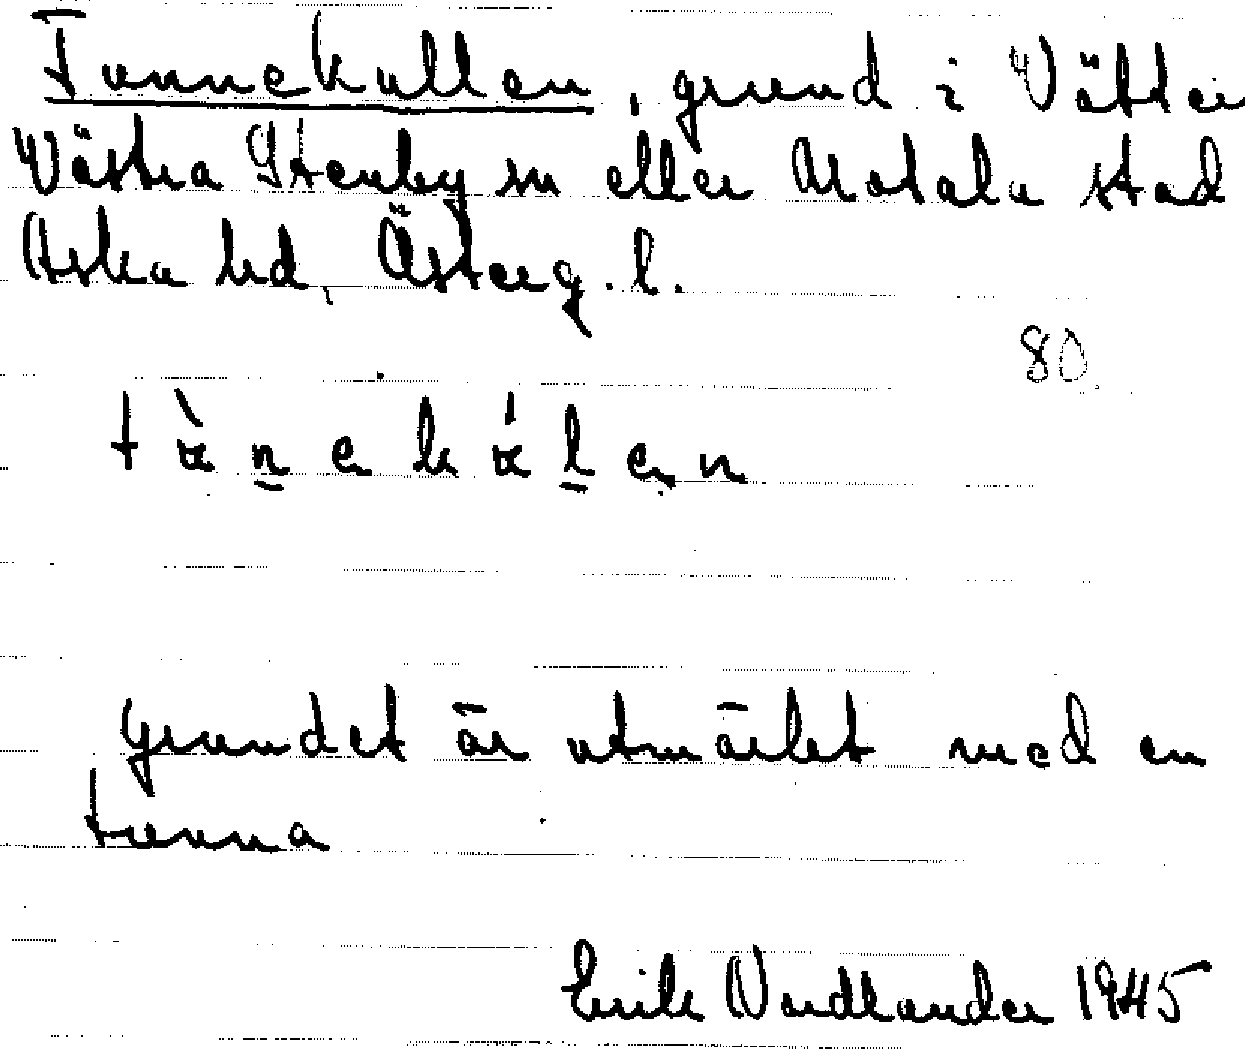 Tunnekullen, grund i Vätter
Västra Stenby sn eller Motala stad
Aska hd, Österg. l.
80
grundet är utmärket med en
tunna
Erik Nordlander 1945